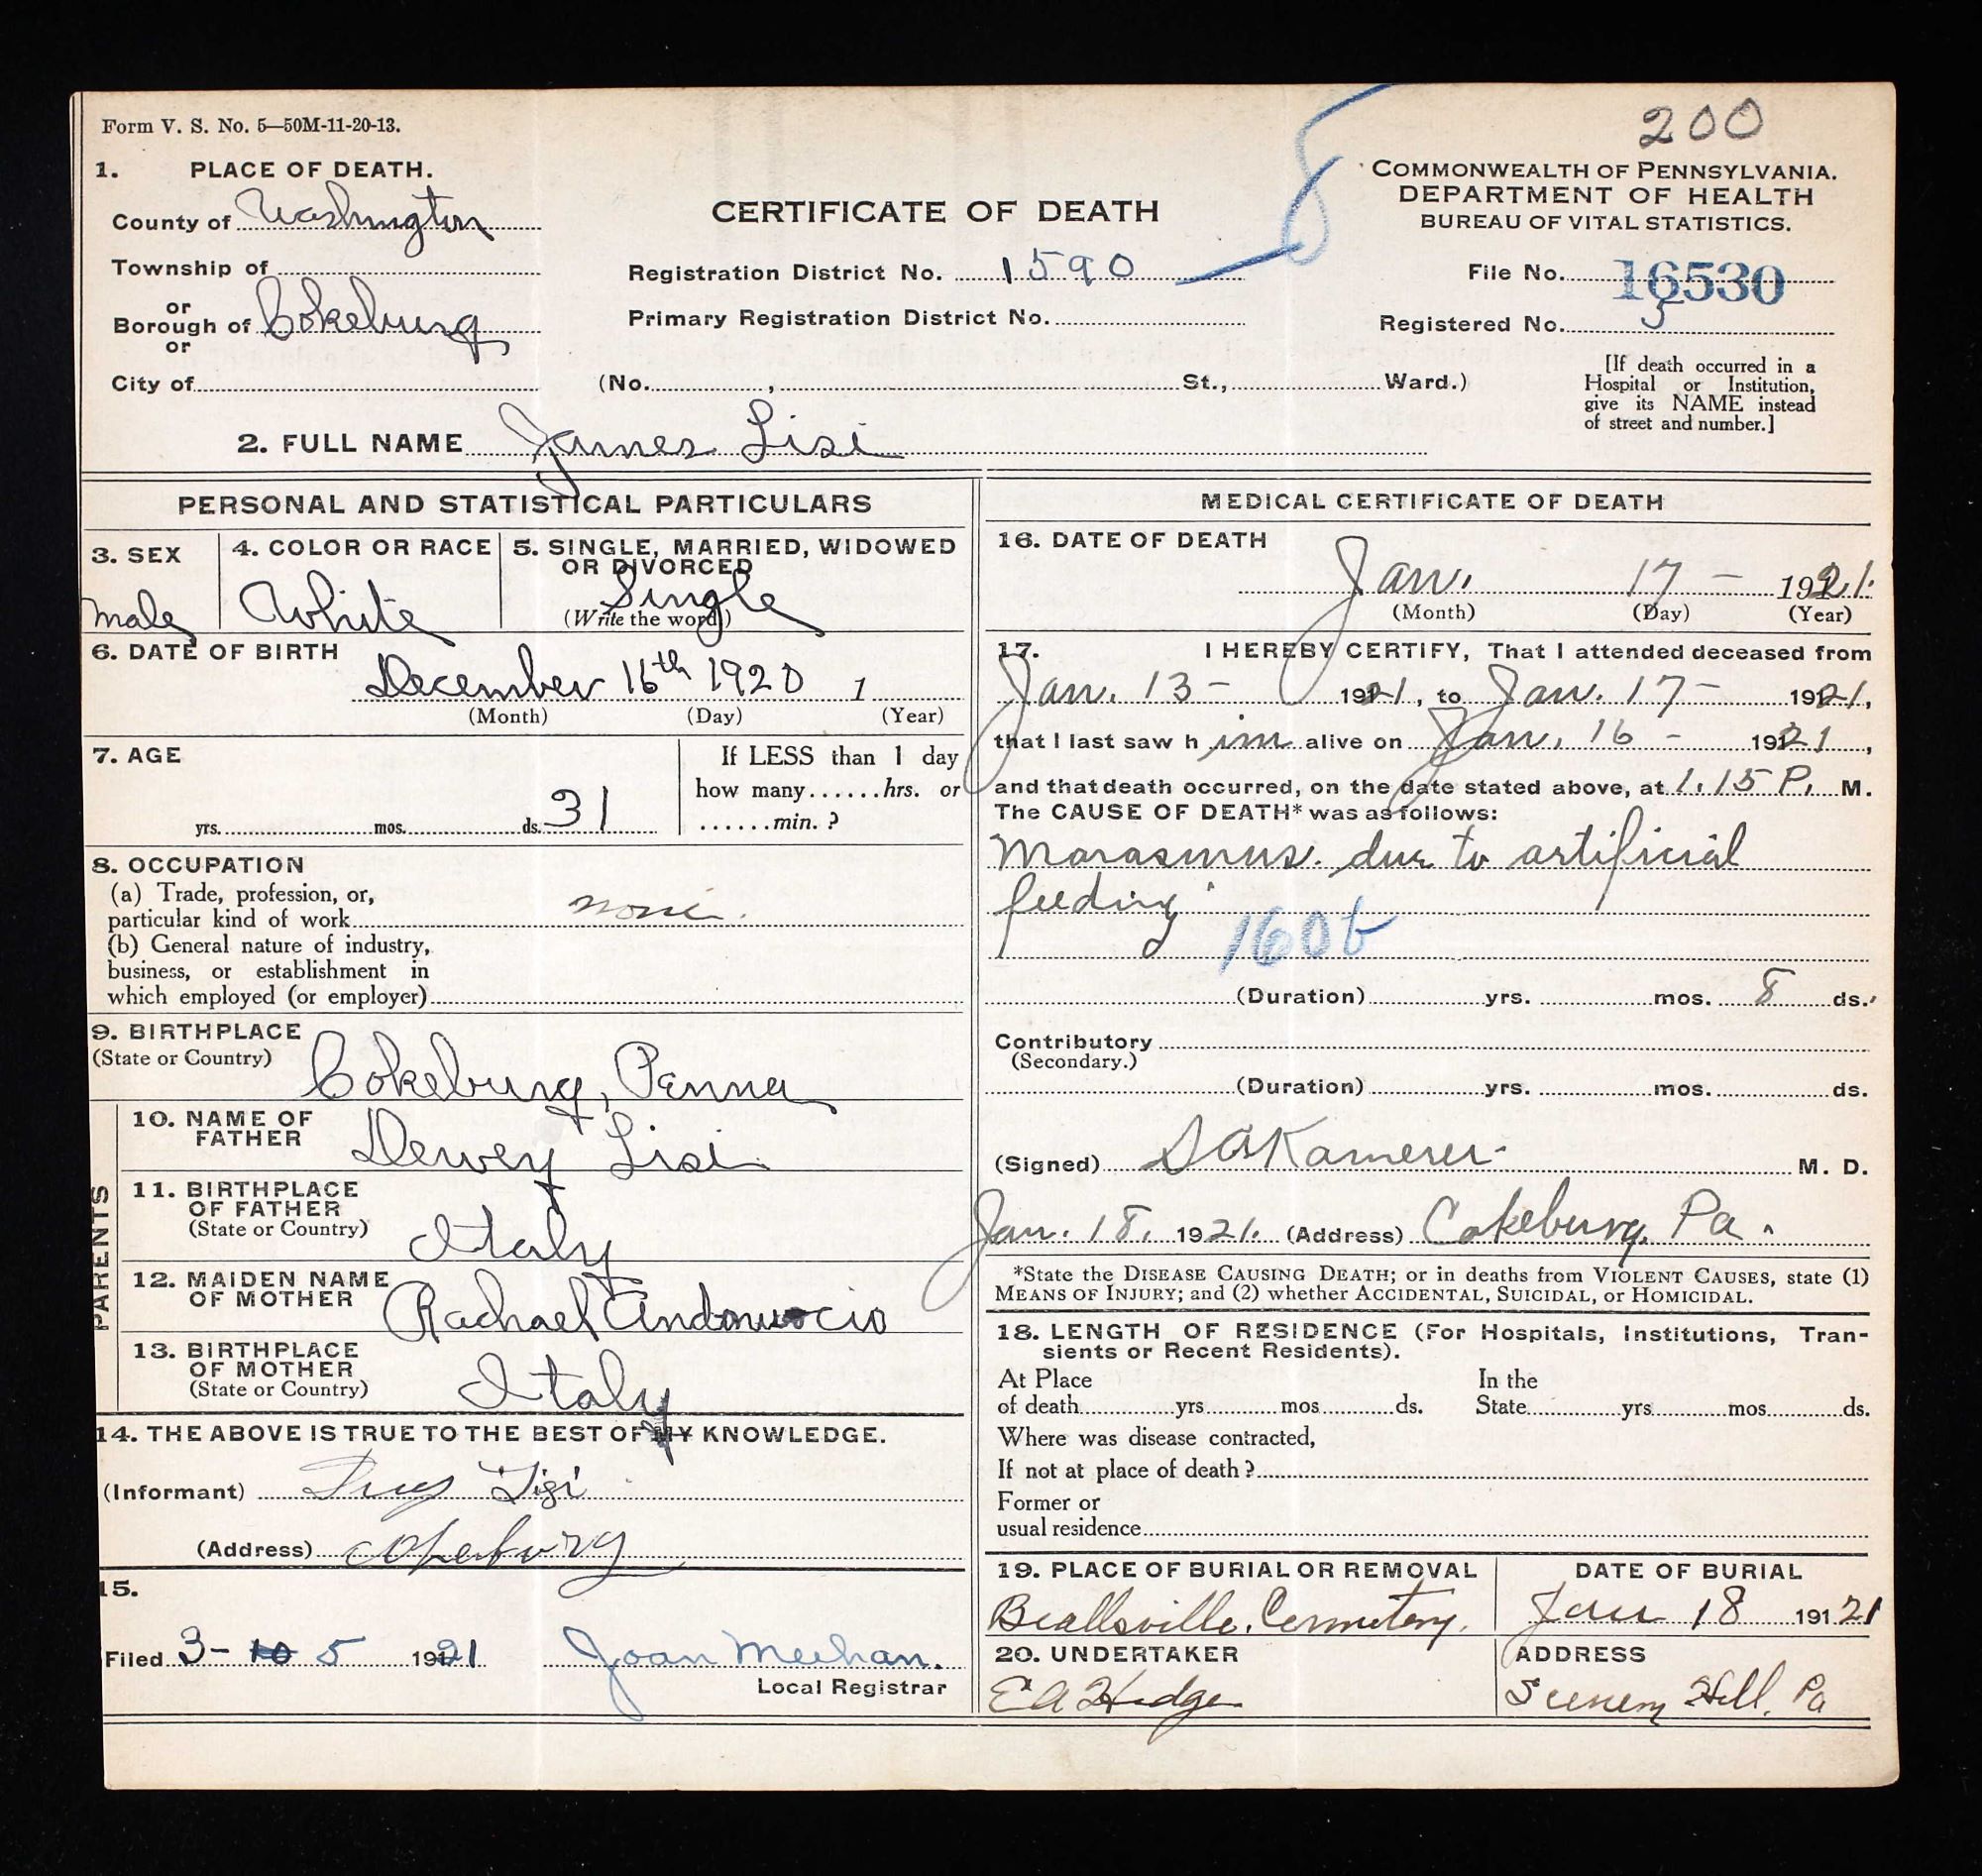 Form V. S. No. 5—50M-11-20-13.
200
1. PLACE OF DEATH.
County of Washington
Township of
or
Borough of Cokeburg
or
City of
CERTIFICATE OF DEATH
Registration District No. 1590
Primary Registration District No.
(No. , St., Ward.)
COMMONWEALTH OF PENNSYLVANIA.
DEPARTMENT OF HEALTH
BUREAU OF VITAL STATISTICS.
File No. 16530
Registered No. 5
[If death occurred in a
Hospital or Institution,
give its NAME instead
of street and number.]
2. FULL NAME James Lisi
PERSONAL AND STATISTICAL PARTICULARS
3. SEX
male
4. COLOR OR RACE
White
5. SINGLE, MARRIED, WIDOWED
OR DIVORCED
Single
(Write the word)
6. DATE OF BIRTH
December 16th 1920 1
(Month) (Day) (Year)
7. AGE
yrs. mos. ds. 31
If LESS than 1 day
how many......hrs. or
......min. ?
8. OCCUPATION
(a) Trade, profession, or,
particular kind of work none.
(b) General nature of industry,
business, or establishment in
which employed (or employer)
9. BIRTHPLACE
(State or Country)
Cokeburg, Penna
PARENTS
10. NAME OF
FATHER
Dewey Lisi
11. BIRTHPLACE
OF FATHER
(State or Country)
Italy
12. MAIDEN NAME
OF MOTHER
Rachael
13. BIRTHPLACE
OF MOTHER
(State or Country)
Italy
14. THE ABOVE IS TRUE TO THE BEST OF MY KNOWLEDGE.
(Informant) Lisi
(Address) Cokeburg
15.
Filed 3- 10 5 1921 Joan Meehan.
Local Registrar
MEDICAL CERTIFICATE OF DEATH
16. DATE OF DEATH
Jan. 17 - 1921.
(Month) (Day) (Year)
17. I HEREBY CERTIFY, That I attended deceased from
Jan. 13 - 1921, to Jan. 17 - 1921,
that I last saw h im alive on Jan. 16 - 1921,
and that death occurred, on the date stated above, at 1.15 P. M.
The CAUSE OF DEATH* was as follows:
Marasmus. due to artificial
feeding
160b
(Duration) yrs. mos. 8 ds.
Contributory
(Secondary.)
(Duration) yrs. mos. ds.
(Signed) S A Kamerer M. D.
Jan. 18, 1921. (Address) Cokeburg, Pa.
*State the DISEASE CAUSING DEATH; or in deaths from VIOLENT CAUSES, state (1)
MEANS OF INJURY; and (2) whether ACCIDENTAL, SUICIDAL, or HOMICIDAL.
18. LENGTH OF RESIDENCE (For Hospitals, Institutions, Tran-
sients or Recent Residents).
At Place
of death yrs mos ds.
In the
State yrs mos ds.
Where was disease contracted,
If not at place of death?
Former or
usual residence
19. PLACE OF BURIAL OR REMOVAL
Beallsville, Cemetery.
DATE OF BURIAL
Jan 18 1921
20. UNDERTAKER
E A Hodge
ADDRESS
Scenery Hill, Pa